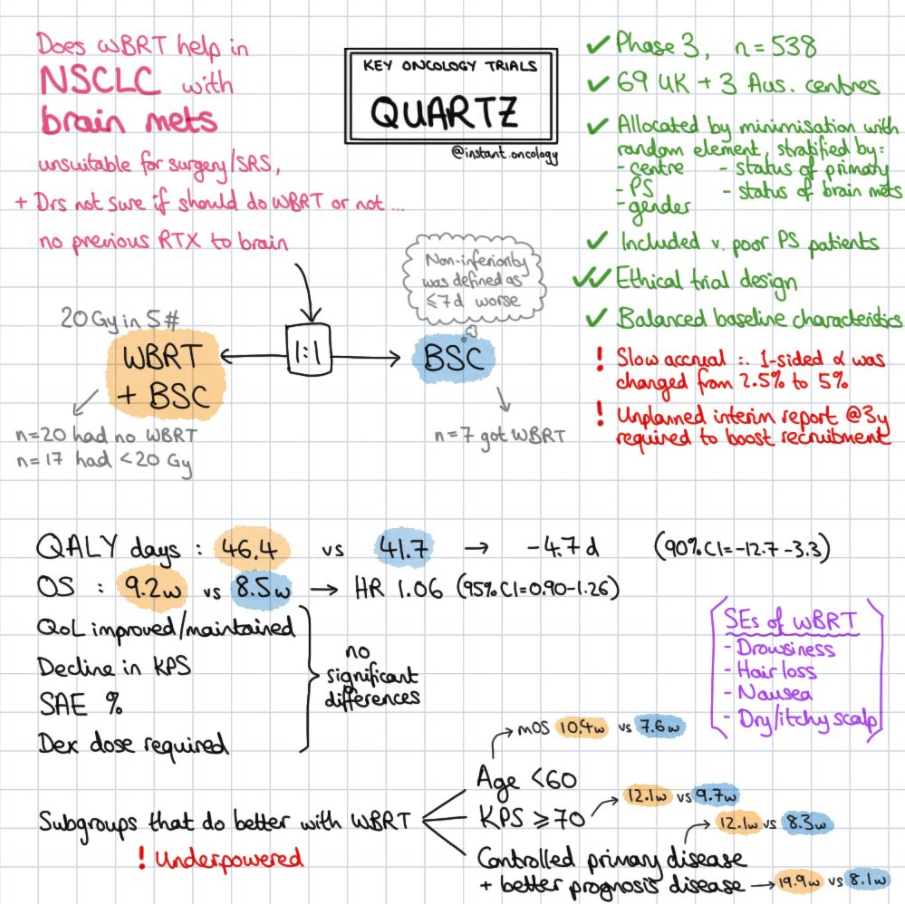 Does WBRT help in
NSCLC with
brain mets
unsuitable for surgery/SRS,
+ Drs not sure if should do WBRT or not ...
no previous RTX to brain
KEY ONCOLOGY TRIALS
QUARTZ
@instant.oncology
✓ Phase 3, n = 538
✓ 69 UK + 3 Aus. centres
✓ Allocated by minimisation with
random element, stratified by:
- centre - status of primary
- PS - status of brain mets
- gender
✓ Included v. poor PS patients
✓✓ Ethical trial design
✓ Balanced baseline characteristics
! Slow accrual ∴ 1-sided α was
changed from 2.5% to 5%
! Unplanned interim report @3y
required to boost recruitment
Non-inferiority
was defined as
≤7d worse
20 Gy in 5#
WBRT
+ BSC
1:1
BSC
n=20 had no WBRT
n=17 had <20 Gy
n=7 got WBRT
QALY days : 46.4 vs 41.7 → -4.7d (90% CI = -12.7 - 3.3)
OS : 9.2w vs 8.5w → HR 1.06 (95% CI = 0.90-1.26)
QoL improved/maintained
Decline in KPS
SAE %
Dex dose required
no
significant
differences
SEs of WBRT
- Drowsiness
- Hair loss
- Nausea
- Dry/itchy scalp
Subgroups that do better with WBRT
! Underpowered
Age <60
→ mOS 10.4w vs 7.6w
KPS ≥70
→ 12.1w vs 9.7w
Controlled primary disease
→ 12.1w vs 8.3w
+ better prognosis disease → 19.9w vs 8.1w